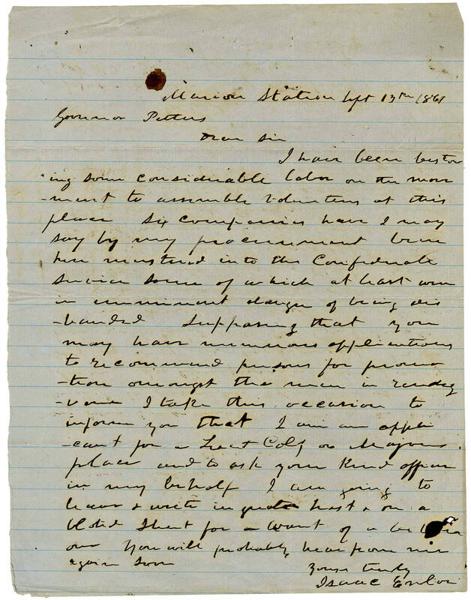 Marion Station Sept 13th 1861
Governor Pettus
Dear Sir
I have been bestow
ing some considerable labor on the move
-ment to assemble volunteers at this
place Six companies have I may
say by my procurement been
here mustered into the Confederate
Service some of which at least were
in imminent danger of being dis
-banded Supposing that you
may have numerous applications
to recommend persons for promo
-tion amongst the men in rendez
-vous I take this occasion to
inform you that I am an appli
-cant for a Lieut Col or Majors
place and to ask your kind offices
in my behalf I am going to
leave & write in great haste & on a
bloted Sheet for a want of a better
one You will probably hear from me
again soon
Yours truly
Isaac Enloe